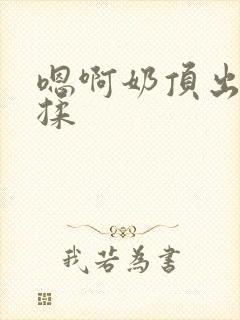 嗯啊奶頂出
揉
我若為書